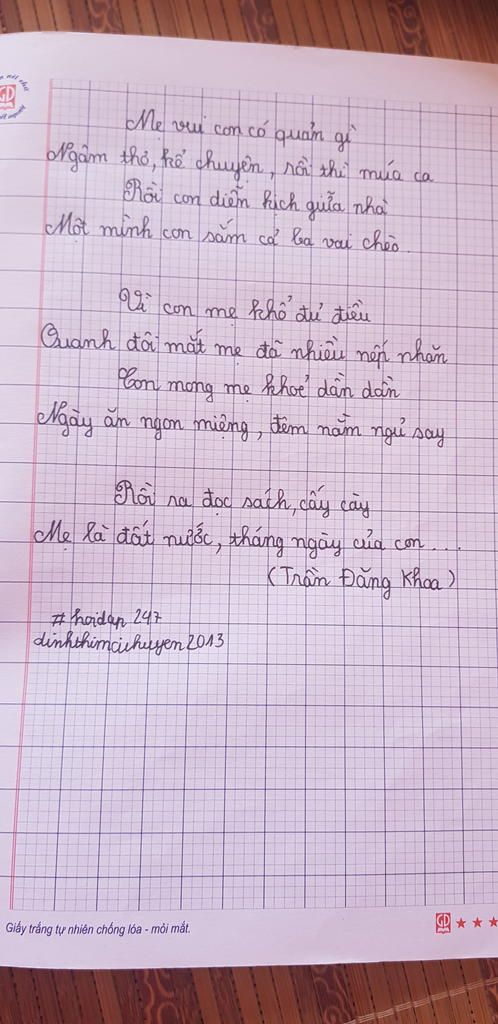 Mẹ vui con có quản gì
Ngâm thơ, kể chuyện, rồi thì múa ca
Rồi con diễn kịch giữa nhà
Một mình con sắm cả ba vai chèo.
Vì con mẹ khổ đủ điều
Quanh đôi mắt mẹ đã nhiều nếp nhăn
Con mong mẹ khoẻ dần dần
Ngày ăn ngon miệng, đêm nằm ngủ say
Rồi ra đọc sách, cấy cày
Mẹ là đất nước, tháng ngày của con...
(Trần Đăng Khoa)
#hoidap 247
dinhthimcihuyen2013
Giấy trắng tự nhiên chống lóa - mỏi mắt.
GD